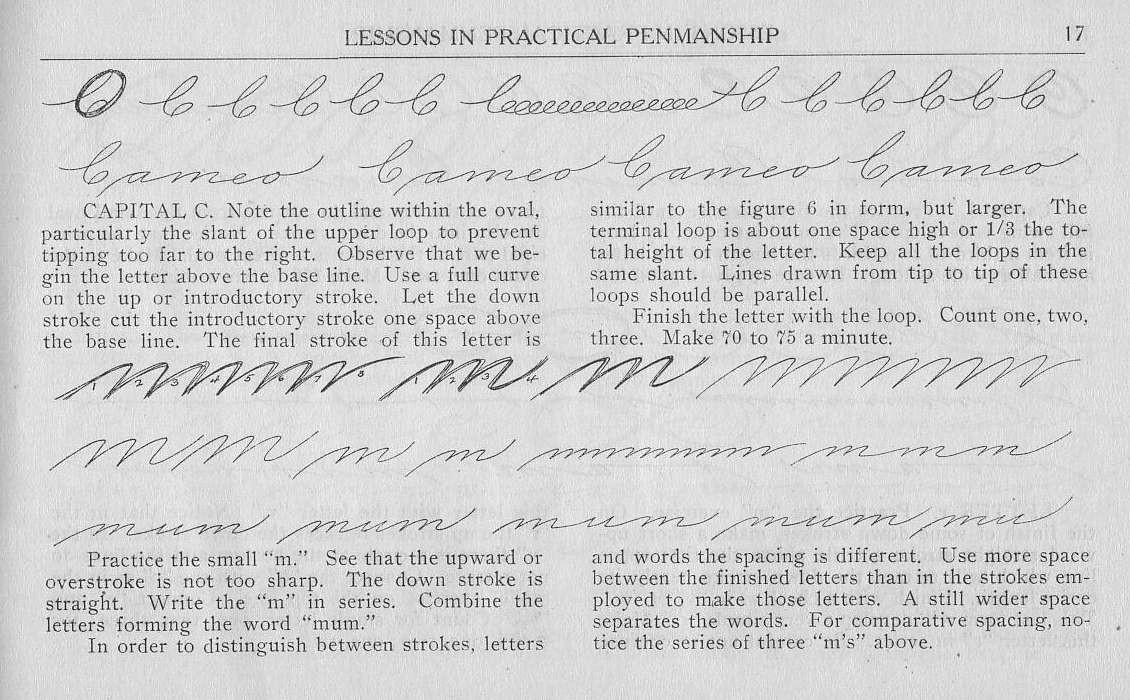 LESSONS IN PRACTICAL PENMANSHIP 17
C C C C C C C C C C C C C
Cameo Cameo Cameo Cameo
CAPITAL C. Note the outline within the oval,
particularly the slant of the upper loop to prevent
tipping too far to the right. Observe that we be-
gin the letter above the base line. Use a full curve
on the up or introductory stroke. Let the down
stroke cut the introductory stroke one space above
the base line. The final stroke of this letter is
similar to the figure 6 in form, but larger. The
terminal loop is about one space high or 1/3 the to-
tal height of the letter. Keep all the loops in the
same slant. Lines drawn from tip to tip of these
loops should be parallel.
Finish the letter with the loop. Count one, two,
three. Make 70 to 75 a minute.
1 2 3 4 5 6 7 8 1 2 3 4 m
m m m m m m m
mum mum mum mum mu
Practice the small "m." See that the upward or
overstroke is not too sharp. The down stroke is
straight. Write the "m" in series. Combine the
letters forming the word "mum."
In order to distinguish between strokes, letters
and words the spacing is different. Use more space
between the finished letters than in the strokes em-
ployed to make those letters. A still wider space
separates the words. For comparative spacing, no-
tice the series of three "m's" above.